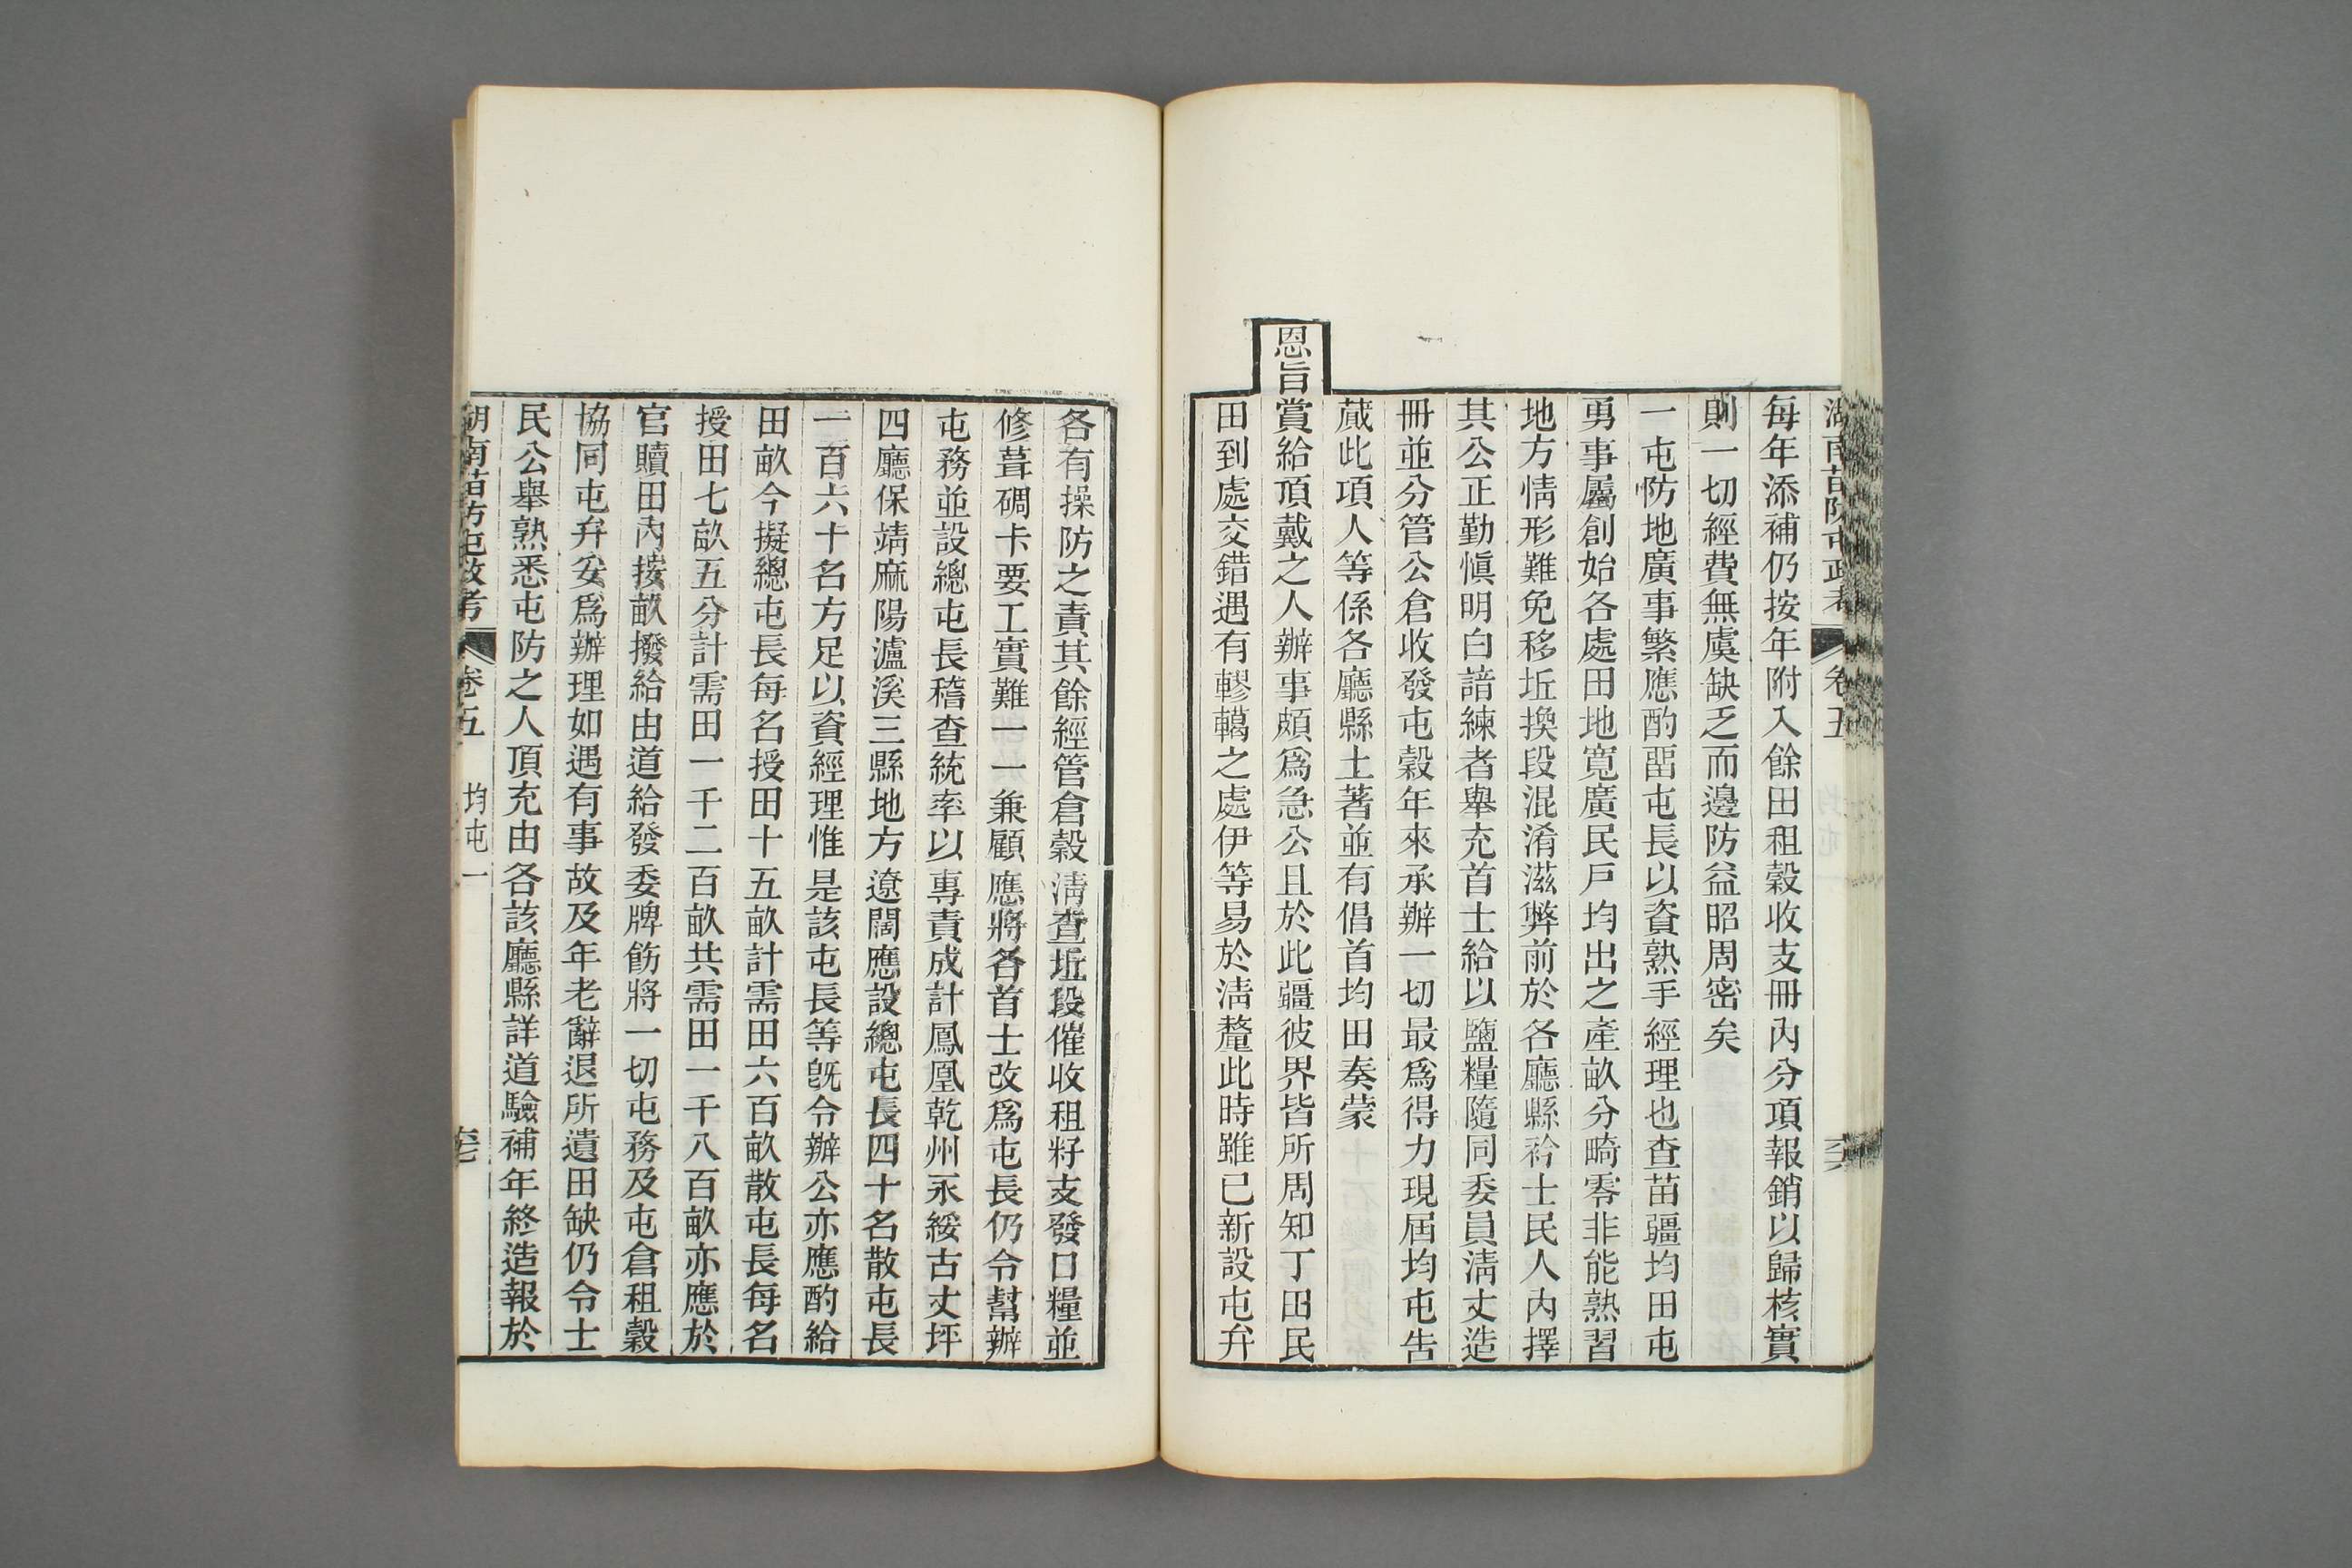 湖南苗防屯政考 卷五 六六
每年添補仍按年附入餘田租穀收支冊內分項報銷以歸核實
則一切經費無虞缺乏而邊防益昭周密矣
一屯防地廣事繁應酌留屯長以資熟手經理也查苗疆均田屯
勇事屬創始各處田地寬廣民戶均出之產畝分畸零非能熟習
地方情形難免移坵換段混淆滋弊前於各廳縣衿士民人內擇
其公正勤慎明白諳練者舉充首士給以鹽糧隨同委員清丈造
冊並分管公倉收發屯穀年來承辦一切最爲得力現屆均屯告
蕆此項人等係各廳縣土著並有倡首均田奏蒙
恩旨賞給頂戴之人辦事頗爲急公且於此疆彼界皆所周知丁田民
田到處交錯遇有轇轕之處伊等易於清釐此時雖已新設屯弁
各有操防之責其餘經管倉穀清查坵段催收租籽支發口糧並
修葺碉卡要工實難一一兼顧應將各首士改爲屯長仍令幫辦
屯務並設總屯長稽查統率以專責成計鳳凰乾州永綏古丈坪
四廳保靖麻陽瀘溪三縣地方遼闊應設總屯長四十名散屯長
一百六十名方足以資經理惟是該屯長等旣令辦公亦應酌給
田畝今擬總屯長每名授田十五畝計需田六百畝散屯長每名
授田七畝五分計需田一千二百畝共需田一千八百畝亦應於
官贖田內按畝撥給由道給發委牌飭將一切屯務及屯倉租穀
協同屯弁妥爲辦理如遇有事故及年老辭退所遺田缺仍令士
民公舉熟悉屯防之人頂充由各該廳縣詳道驗補年終造報於
湖南苗防屯政考 卷五 均屯一 六七